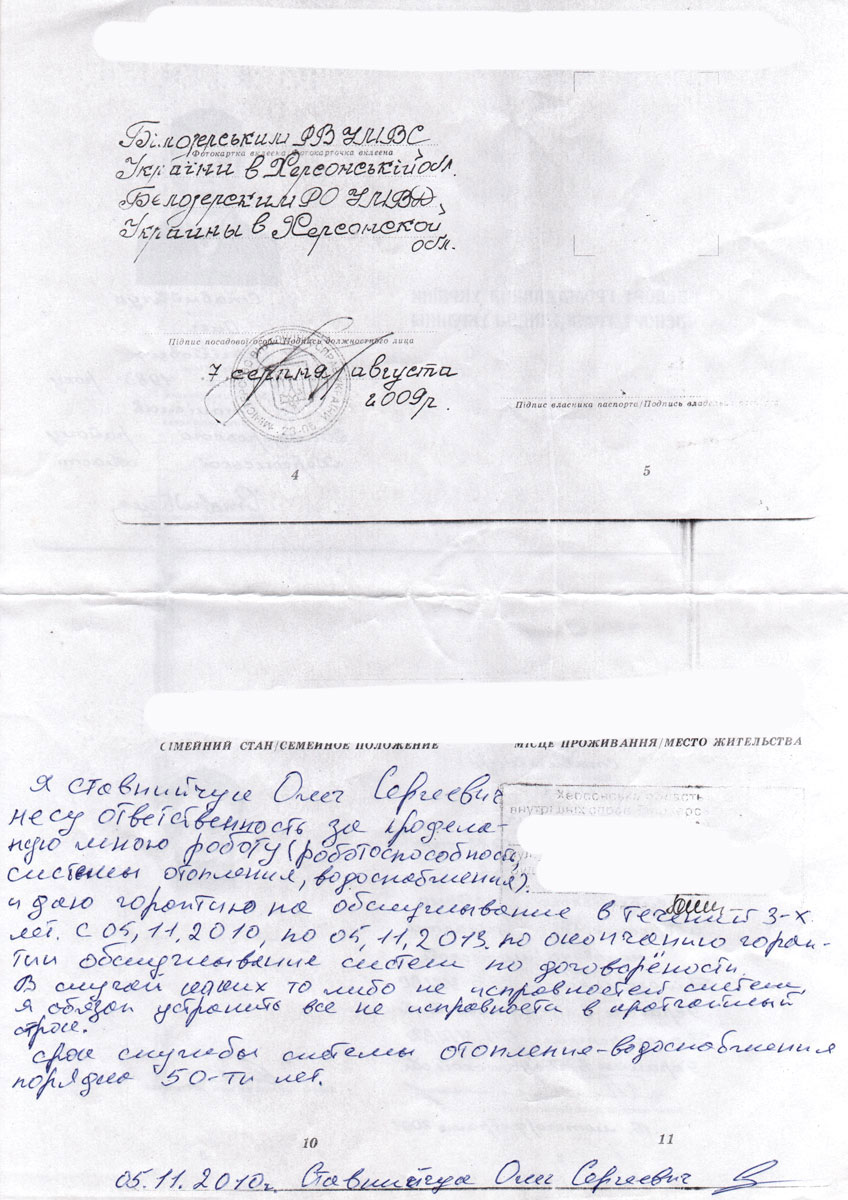 Білозерським РВ УМВС
Фотокартка вклеєна/Фотокарточка вклеена
України в Херсонській обл.
Белозерским РО УМВД
Украины в Херсонской
обл.
Підпис посадової особи/Подпись должностного лица
7 серпня/августа
2009р.
4
Підпис власника паспорта/Подпись
5
СІМЕЙНИЙ СТАН/СЕМЕЙНОЕ ПОЛОЖЕНИЕ
МІСЦЕ ПРОЖИВАННЯ/МЕСТО ЖИТЕЛЬСТВА
Херсонська область
Я Ставнийчук Олег Сергеевич
несу ответственность за продела-
ную мною роботу (роботоспособность
системы отопления, водоснабжения)
и даю горантию на обслуживание в течений 3-х
лет. с 05,11,2010, по 05,11,2013. по окончанию горан-
тии обслуживание систем по договорёности.
В случай каких то либо не исправностей систем,
я обязан устранить все не исправности в кротчайший
срок.
срок службы системы отопления-водоснабжения
порядка 50-ти лет.
10
11
05.11.2010г. Ставнийчук Олег Сергеевич